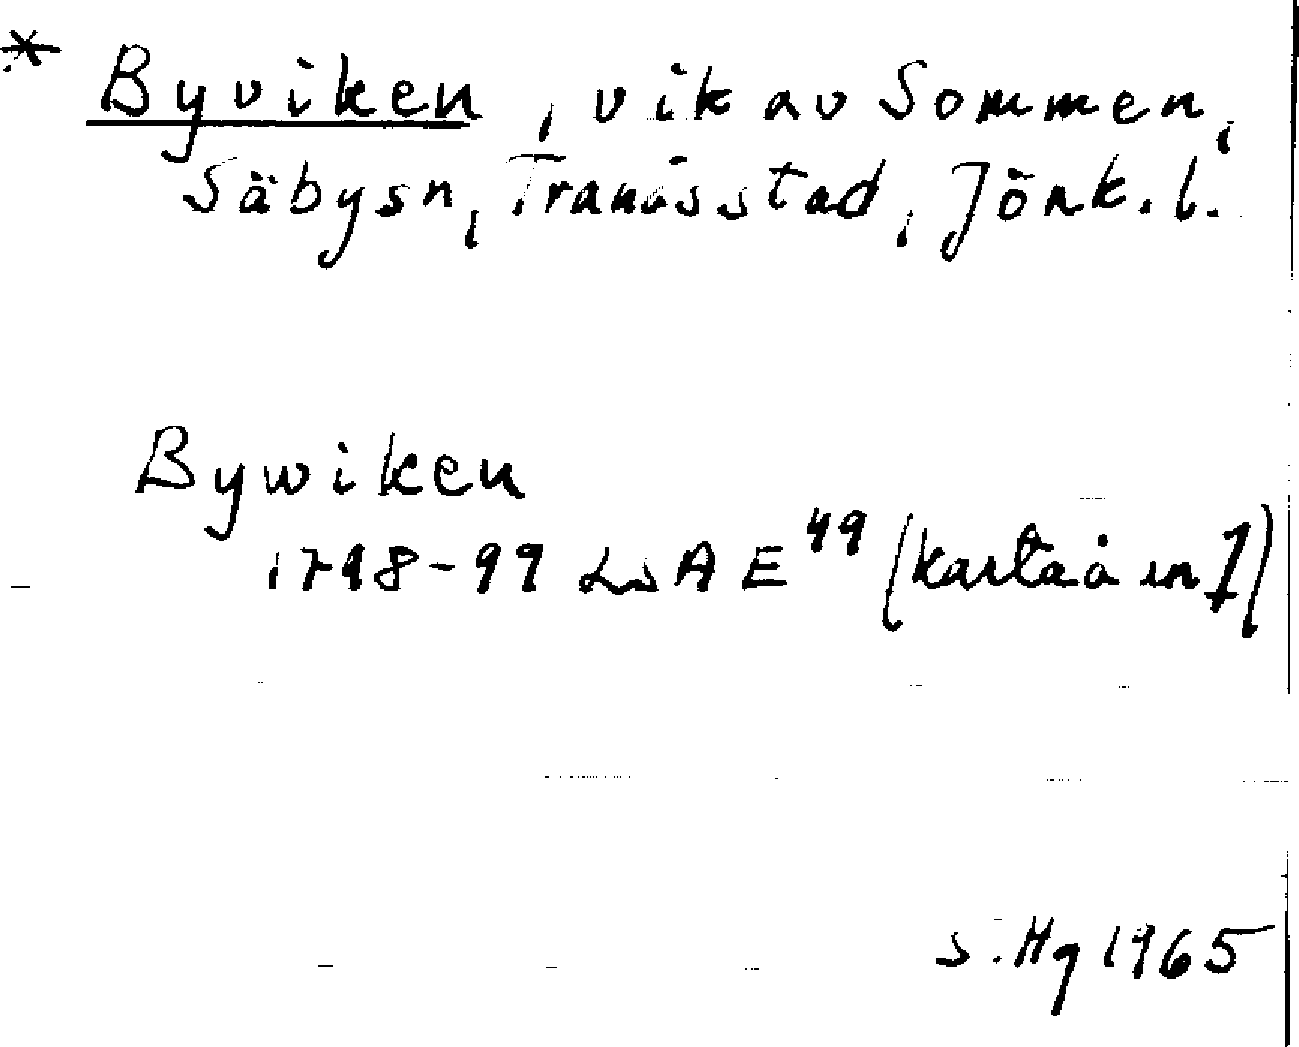 * Byviken, vik av Sommen,
Säbysn, Tranås stad, Jönk. l.
Bywiken
1798-99 LSA E 49 (karta ä
S. Hg 1965